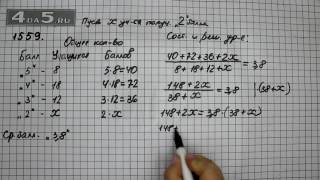 4-DA5.RU
Пусть x уч-ся получ. "2" балл
1559.
Общее кол-во
Сост. и реш. ур-е:
Балл Учащихся Баллов
"5" - 8 5·8=40
"4" - 18 4·18=72
"3" - 12 3·12=36
"2" - x 2·x
Ср. балл - "3,8"
40+72+36+2x / 8+18+12+x = 3,8
148+2x / 38+x = 3,8 (38+x)
148+2x=3,8·(38+x)
148+